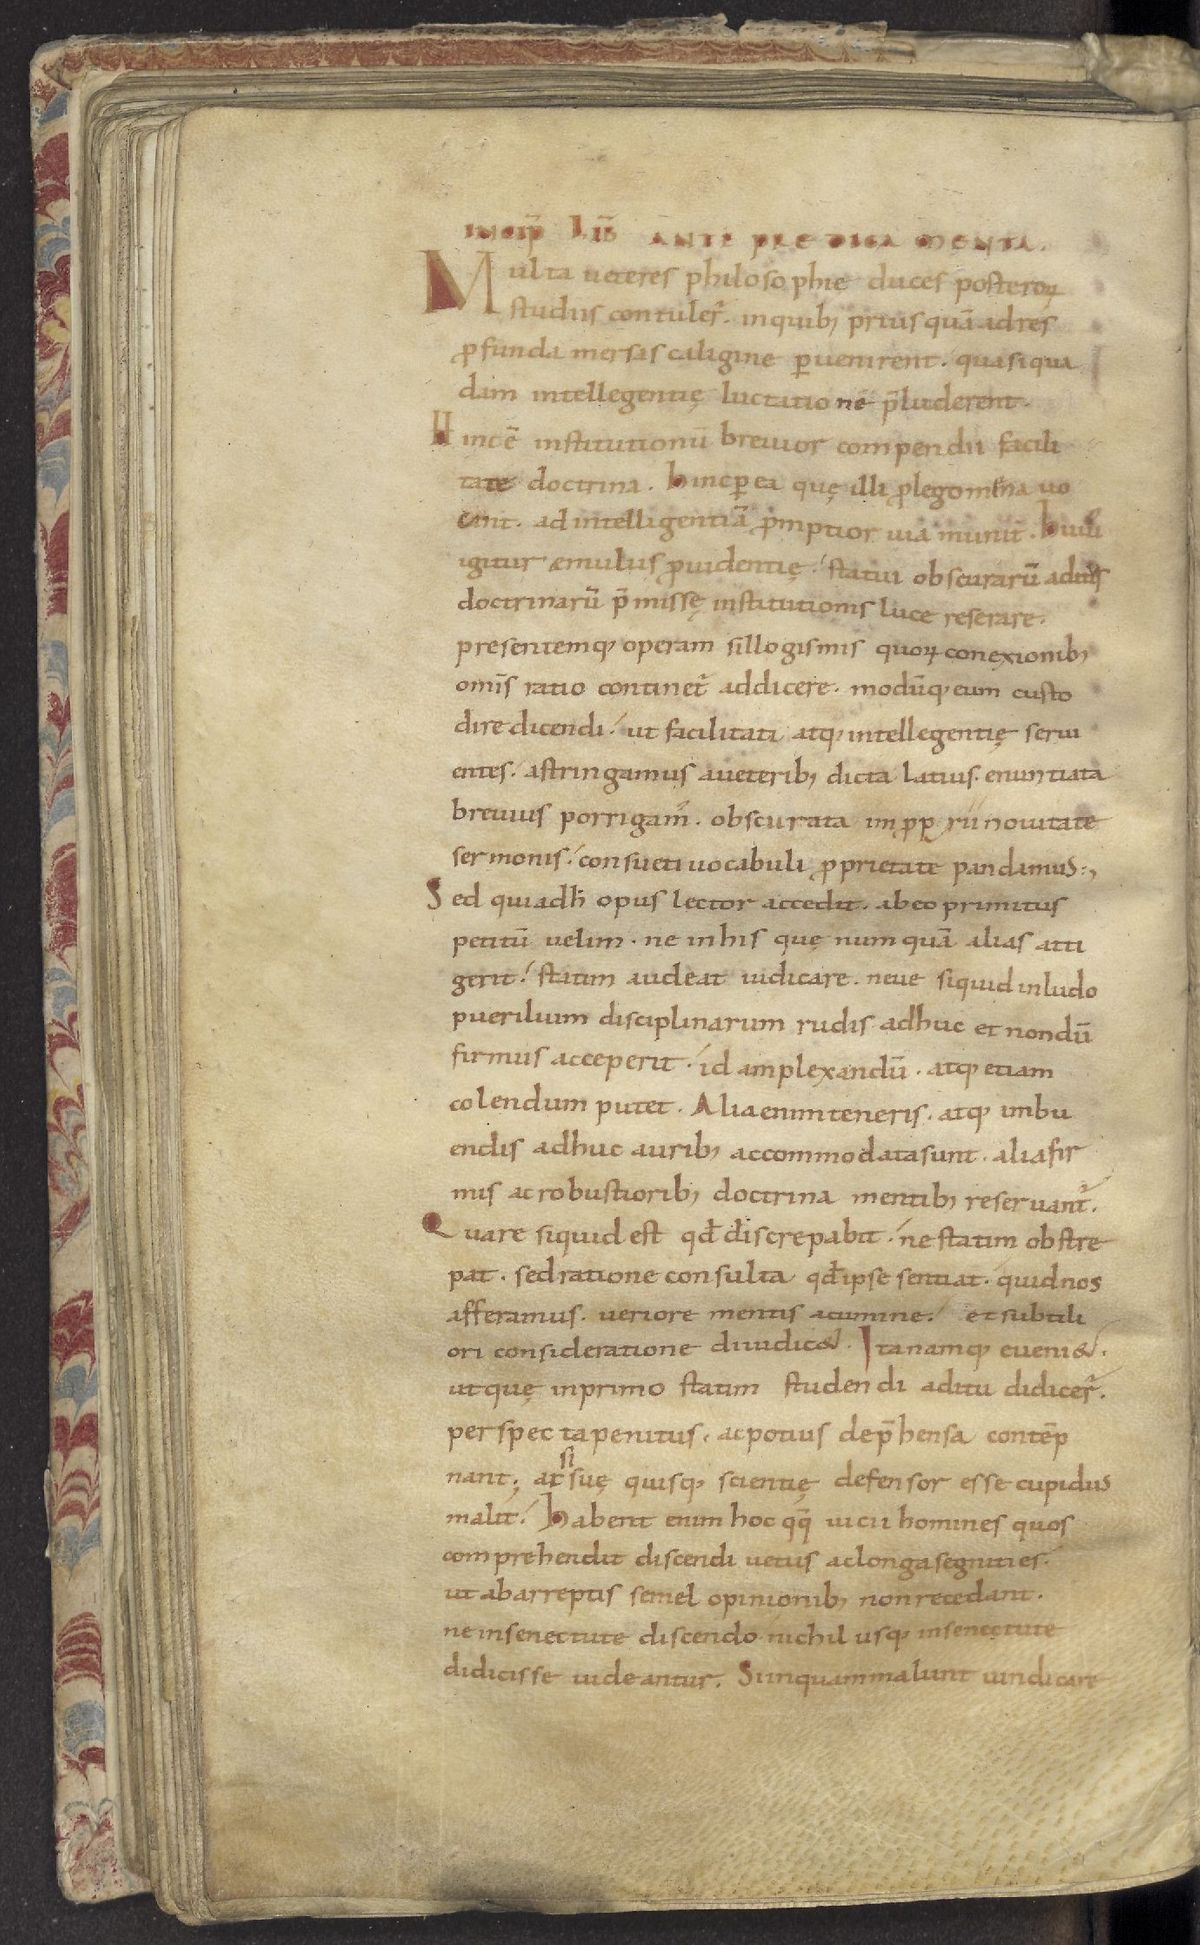 INCIP̄ LIB̄ ANTE PREDICAMENTA.
Multa ueteres philosophie duces posteroꝝ
studiis contuler̄. inquib; priusquā adres
ꝓfunda mersas caligine ꝑuenirent. quasi qua
dam intellegentię luctatione p̄luderent.
Hinc ē institutionū breuior compendii facili
tate doctrina. hinc ꝑ ea quę illi ꝓlegomena uo
cant. ad intelligentiā ꝓmptior uia munit̄. huiꝰ
igitur æmulus ꝓuidentię. statui obscurarū aditus
doctrinarū p̄missę institutionis luce reserare.
presentemq; operam sillogismis quoꝝ conexionib;
omīs ratio continet̄ addicere. modūq; eum custo
dire dicendi. ut facilitati atq; intellegentię serui
entes. astringamus aueterib; dicta latius. enuntiata
breuius porrigam̄. obscurata imꝓpꝛii nouitate
sermonis. consueti uocabuli ꝓprietate pandamus:,
Sed qui adh̄ opus lector accedit. ab eo primitus
petitū uelim. ne inhis quę numquā alias atti
gerit. statim audeat iudicare. neue siquid inludo
puerilium disciplinarum rudis adhuc et nondū
firmus acceperit. id amplexandū. atq; etiam
colendum putet. Alia enim teneris. atq; imbu
endis adhuc aurib; accommodata sunt. alia fir
mis ac robustiorib; doctrina mentib; reseruant̄.
Quare siquid est qđ discrepabit. ne statim obstre
pat. sed ratione consulta qđ ipse sentiat. quid nos
afferamus. ueriore mentis acumine. et subtili
ori consideratione diiudic&. Ita namq; eueni&.
ut quę inprimo statim studendi aditu didicer̄.
perspecta penitus. ac potius dep̄hensa contēp
nant; at si suę quisq; scientię defensor esse cupidus
malit. habent enim hoc qq̄ uicii homines quos
comprehendit discendi uetus ac longa segnities.
ut ab arreptis semel opinionib; non recedant.
ne insenectute discendo nichil usq; insenectute
didicisse uideantur. Sin quam malunt uindicare